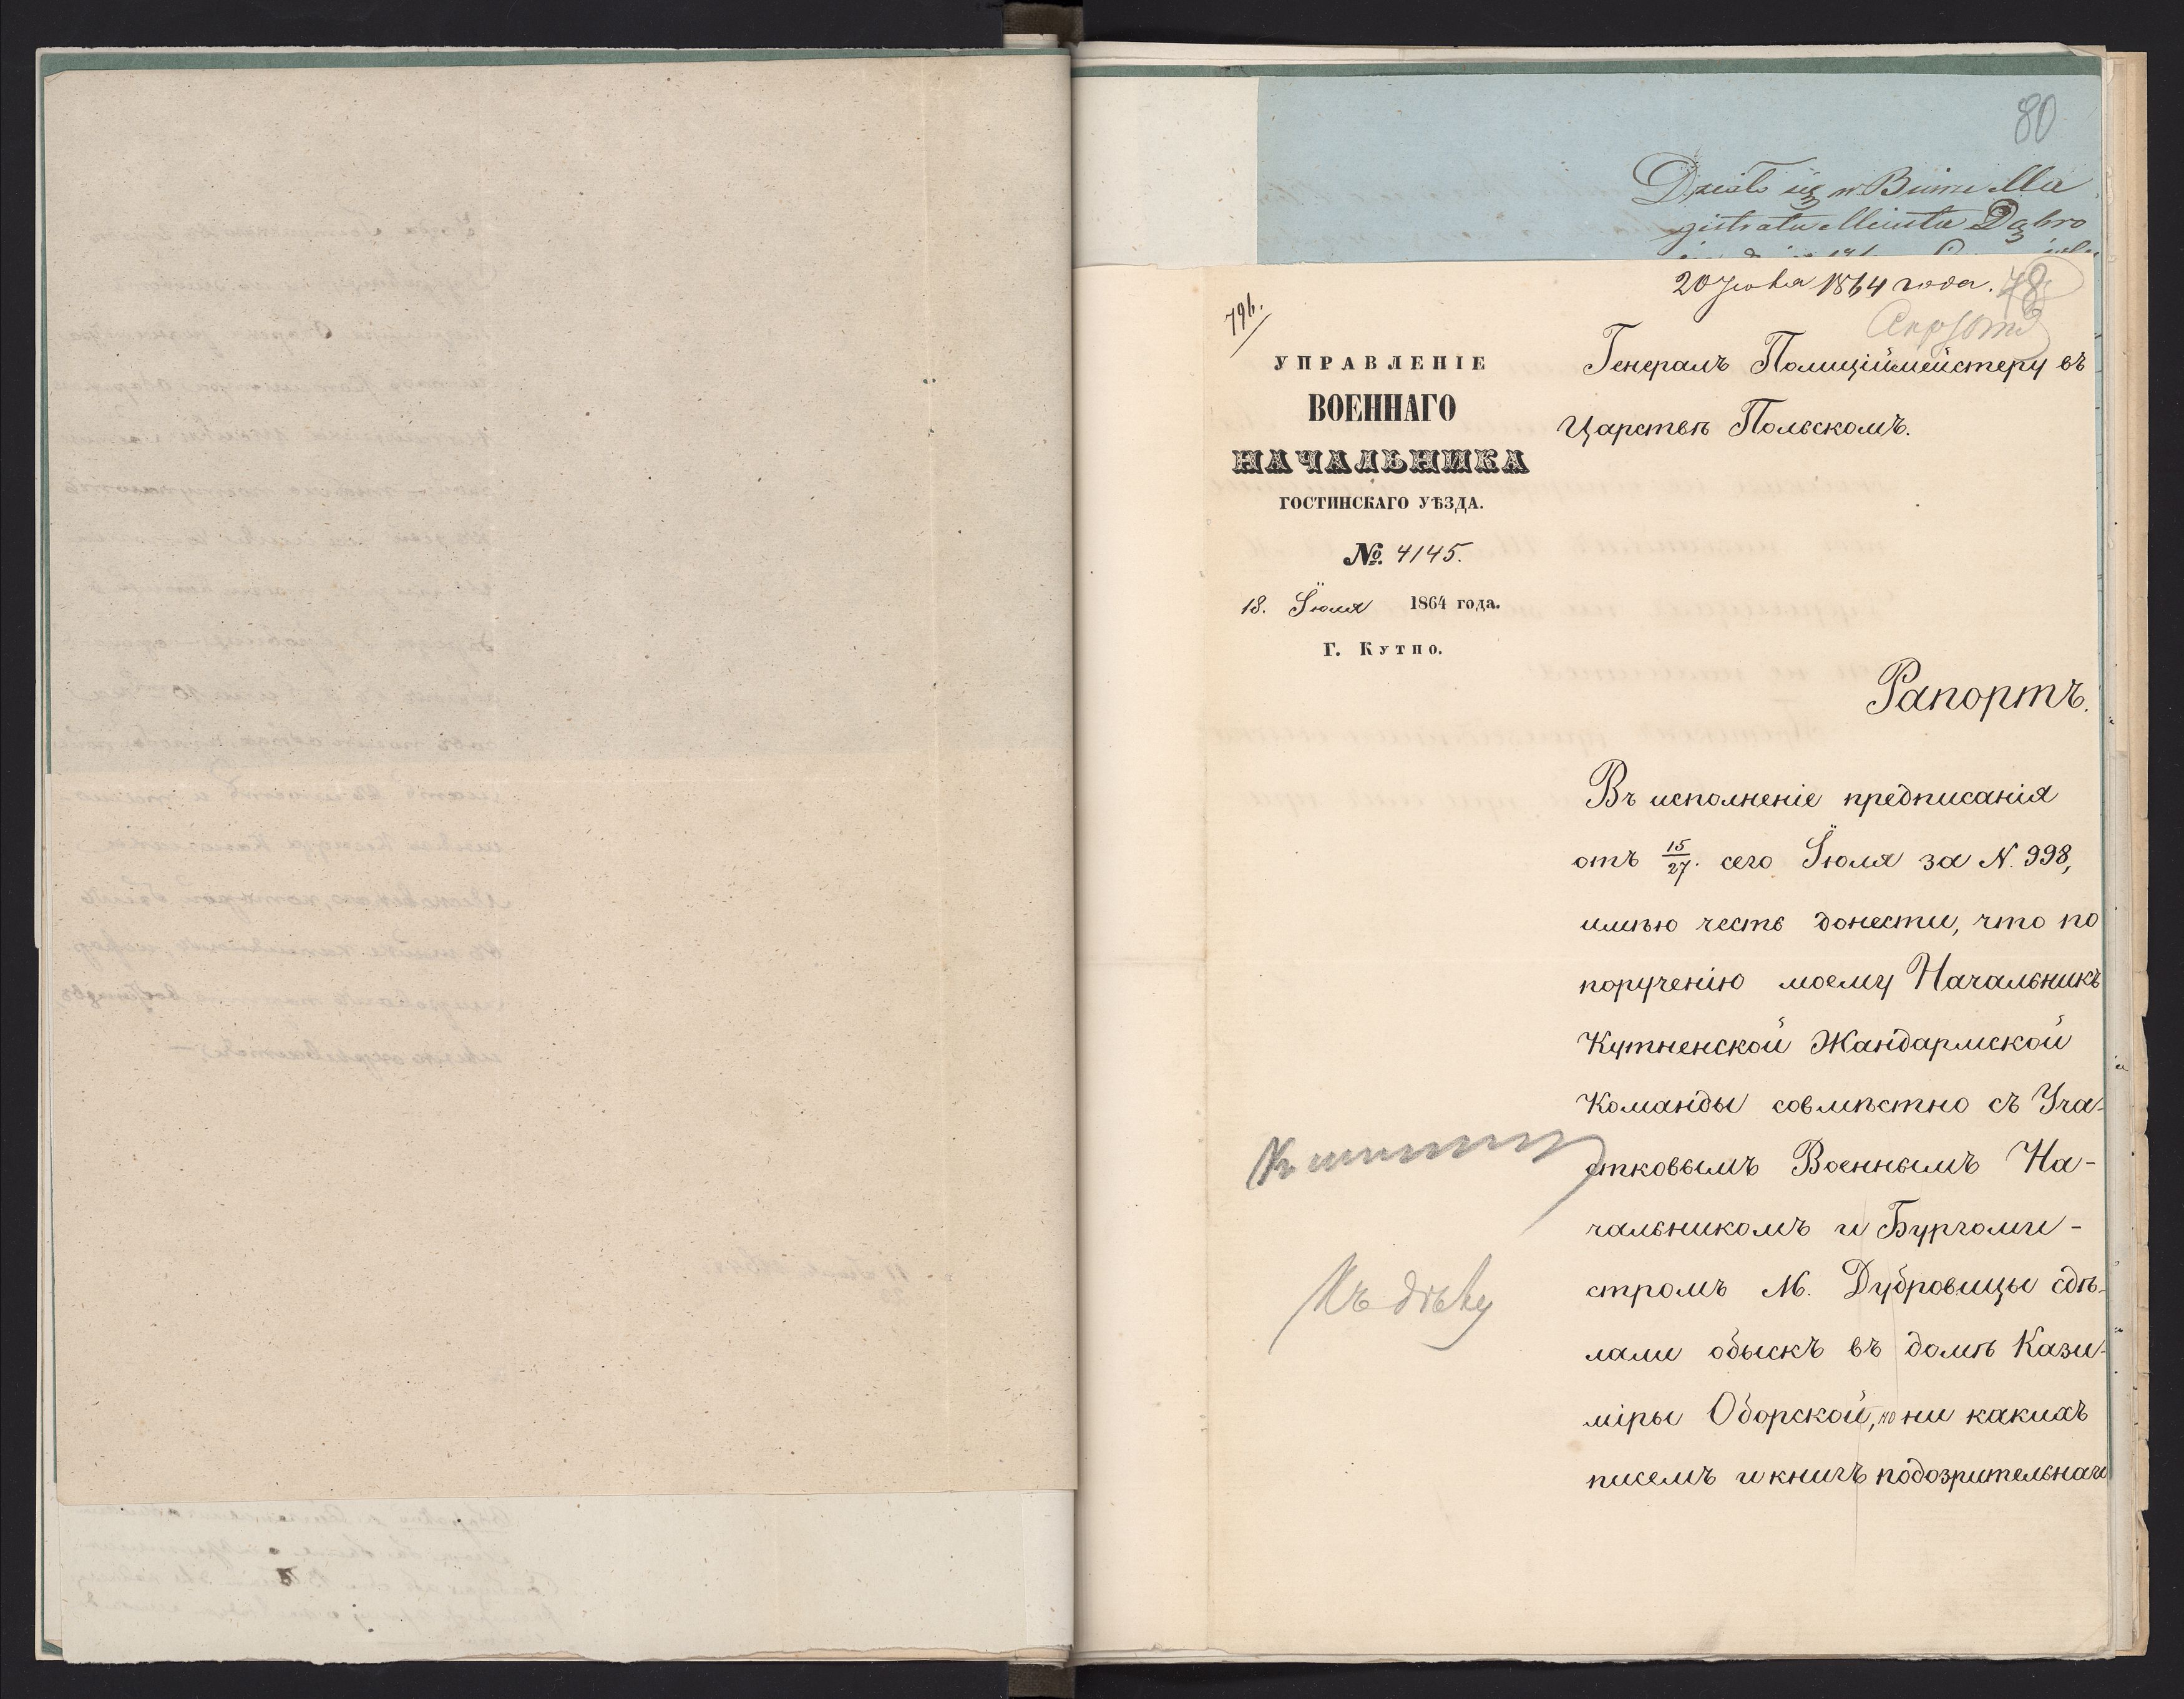 80
Działo się w Biurze Ma
gistratu Miasta Dąbro
20 Июля 1864 года.
78
796.
УПРАВЛЕНІЕ
ВОЕННАГО
НАЧАЛЬНИКА
ГОСТИНСКАГО УѢЗДА.
№. 4145.
18. Іюля 1864 года.
Г. Кутно.
Генералъ Полиціймейстеру въ
Царствѣ Польскомъ.
Рапортъ.
Въ исполненіе предписанія
отъ 15/27. сего Іюля за N. 998,
имѣю честь донести, что по
порученію моему Начальникъ
Кутненской Жандармской
Команды совмѣстно съ Уча-
стковымъ Военнымъ На-
чальникомъ и Бургоми-
стромъ М. Дубровицы сдѣ-
лали обыскъ въ домѣ Кази-
міры Оборской, но ни какихъ
писемъ и книгъ подозрительнаго
Къ дѣлу